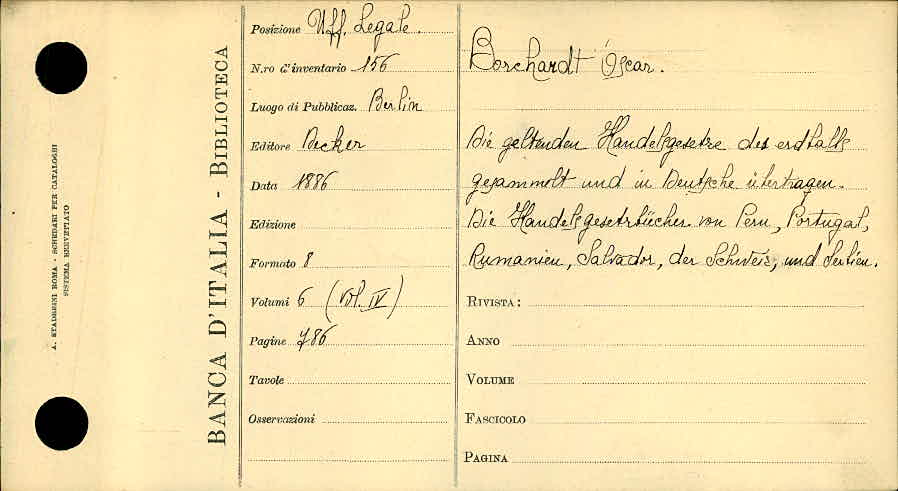 A. STADERINI ROMA - SCHEDARI PER CATALOGHI
SISTEMA BREVETTATO
BANCA D'ITALIA - BIBLIOTECA
Posizione Uff. Legale.
N.ro d'inventario 156
Luogo di Pubblicaz. Berlin
Editore Decker
Data 1886
Edizione
Formato 8
Volumi 6 (Vol. IV)
Pagine 786
Tavole
Osservazioni
Borchardt Oscar.
Die geltenden Handelsgesetze des erdballs
gesammelt und in Deutsche übertragen.
Die Handelsgesetzbücher von Peru, Portugal,
Rumanien, Salvador, der Schweiz, und Serbien.
RIVISTA:
ANNO
VOLUME
FASCICOLO
PAGINA